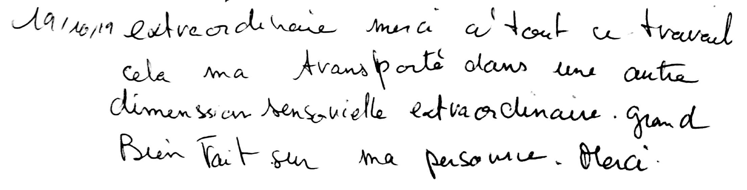 19/10/19 extraordinaire merci à tout ce travail
cela ma transporté dans une autre
dimenssion sensorielle extraordinaire. Grand
Bien Fait sur ma personne. Merci.